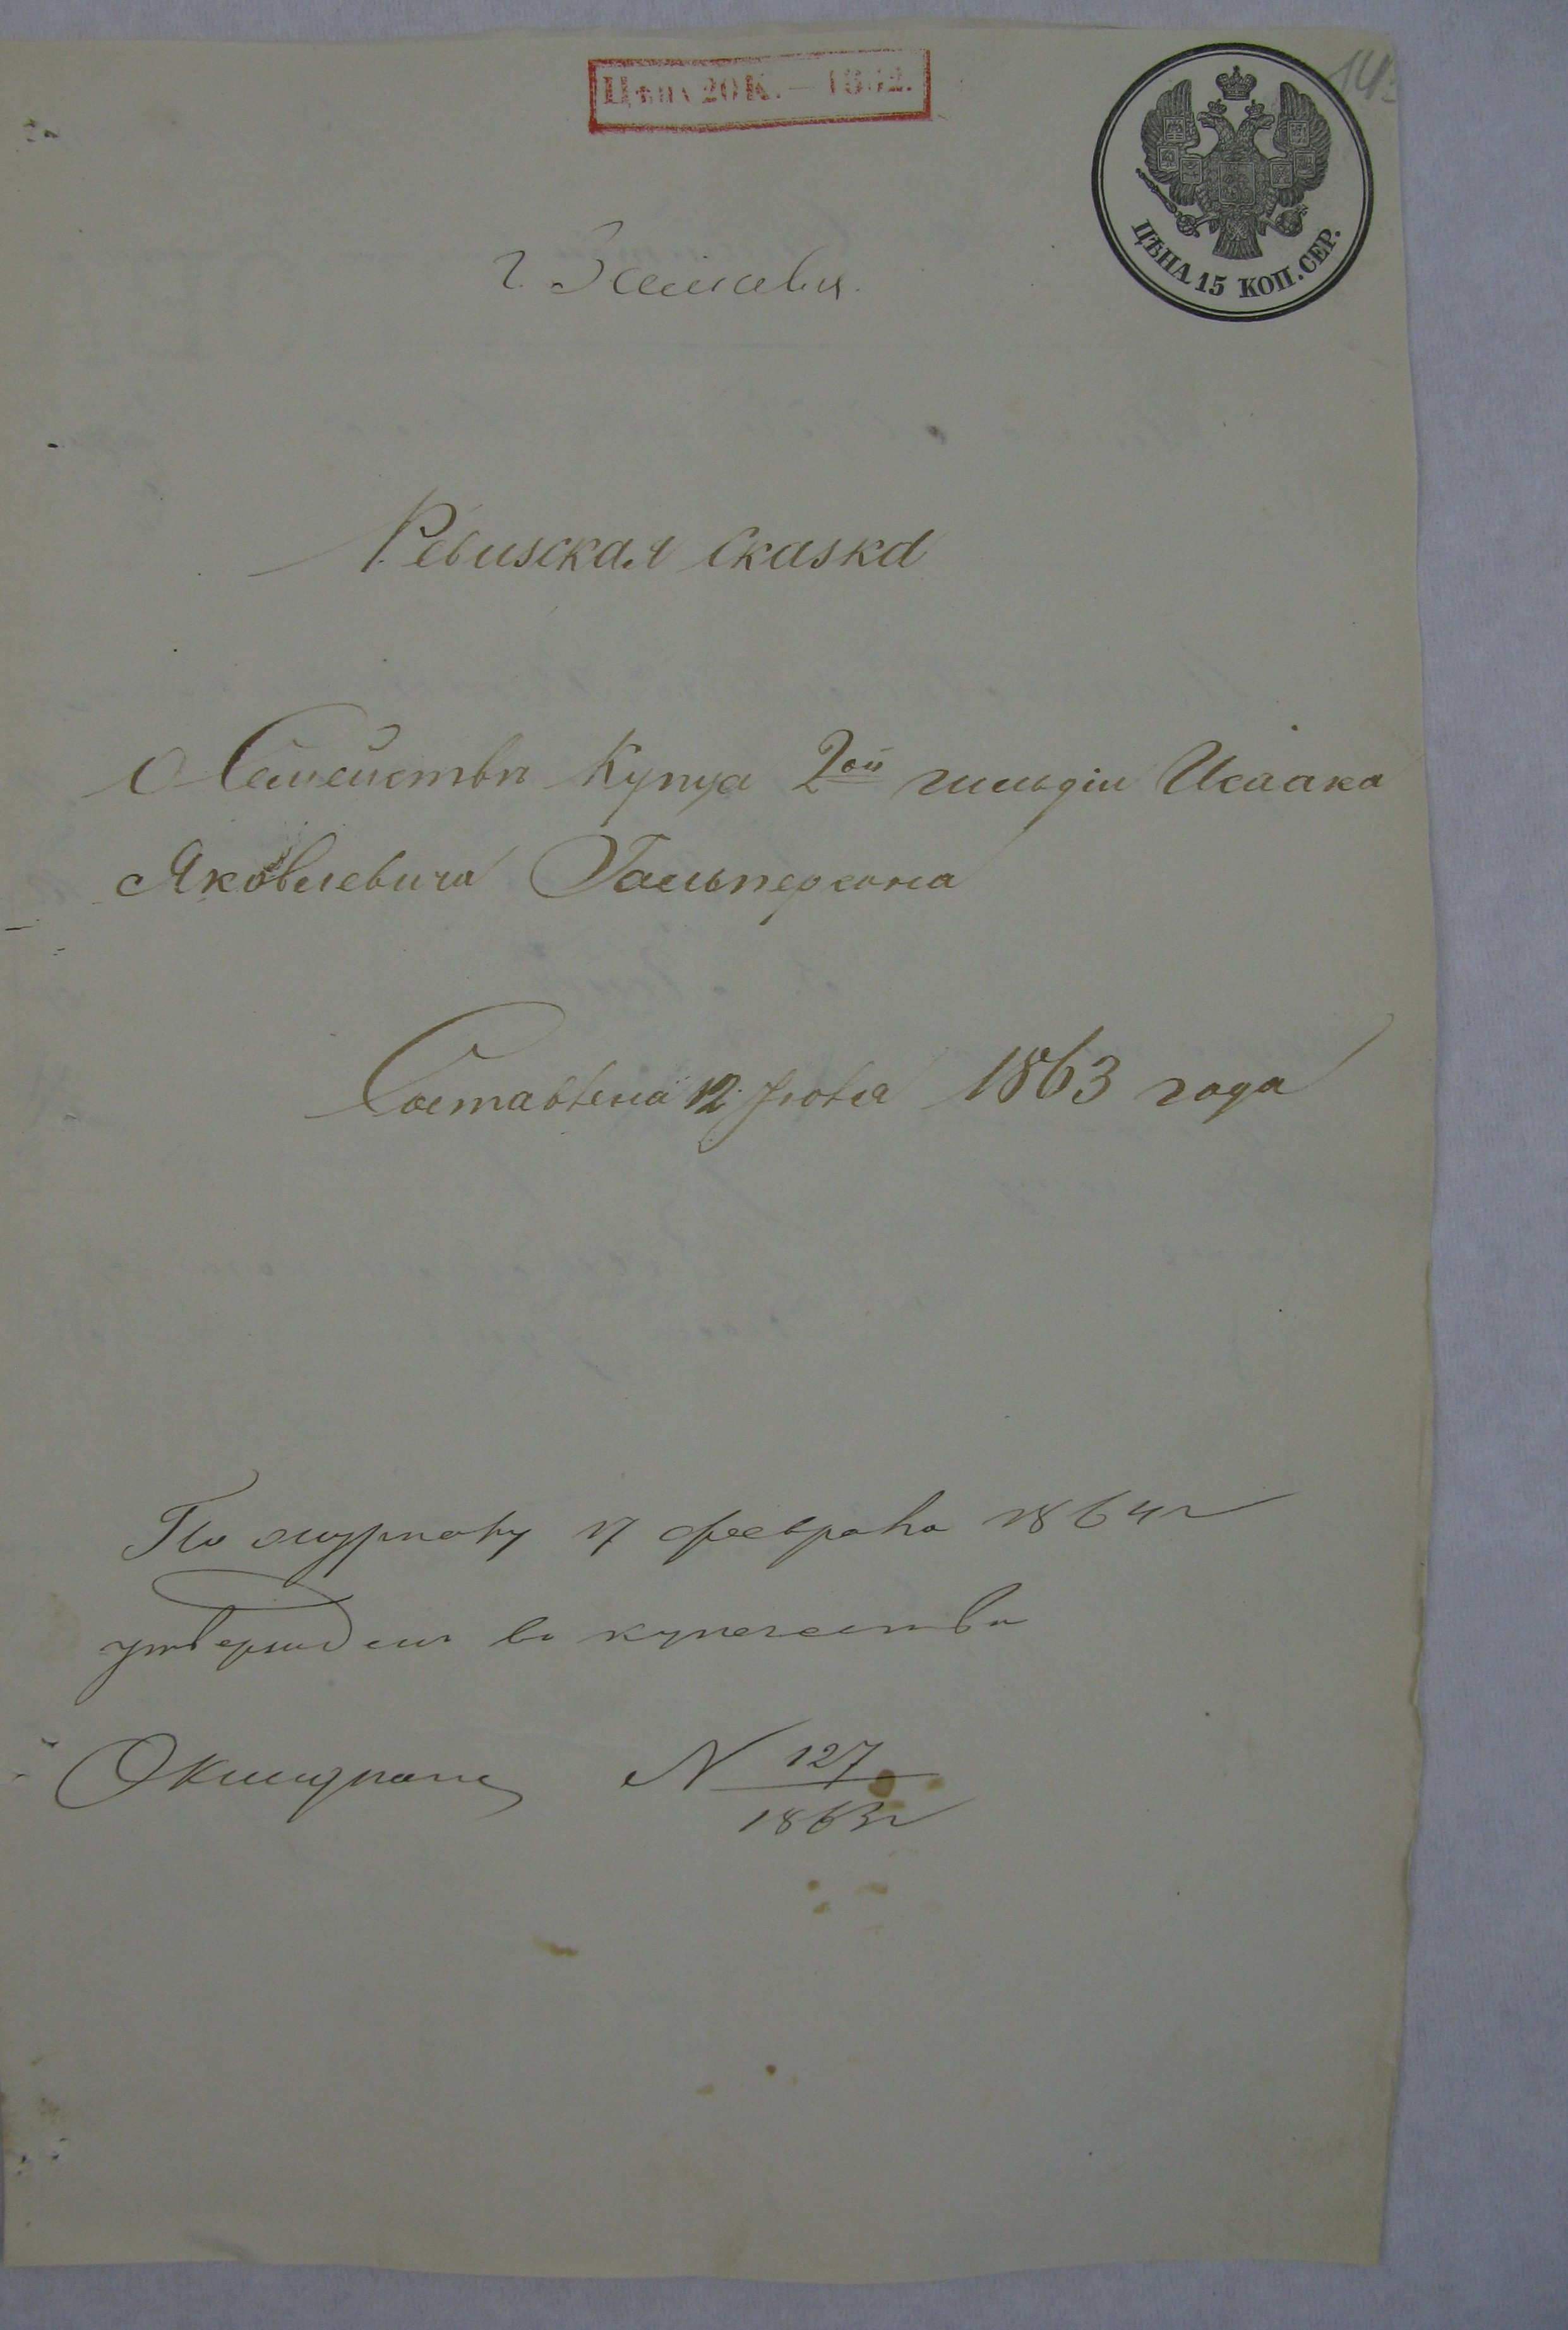 Цѣна 20 К. — 1862.
ЦѢНА 15 КОП. СЕР.
г.
Ревизская Сказка
О Семействѣ Купца 2ой гильдіи Исаака
Яковлевича Гальперсона
Составлена 12 Іюля 1863 года
По журналу 17 февраля 1864 г
утвержденъ въ купечествѣ
N 127
1863 г